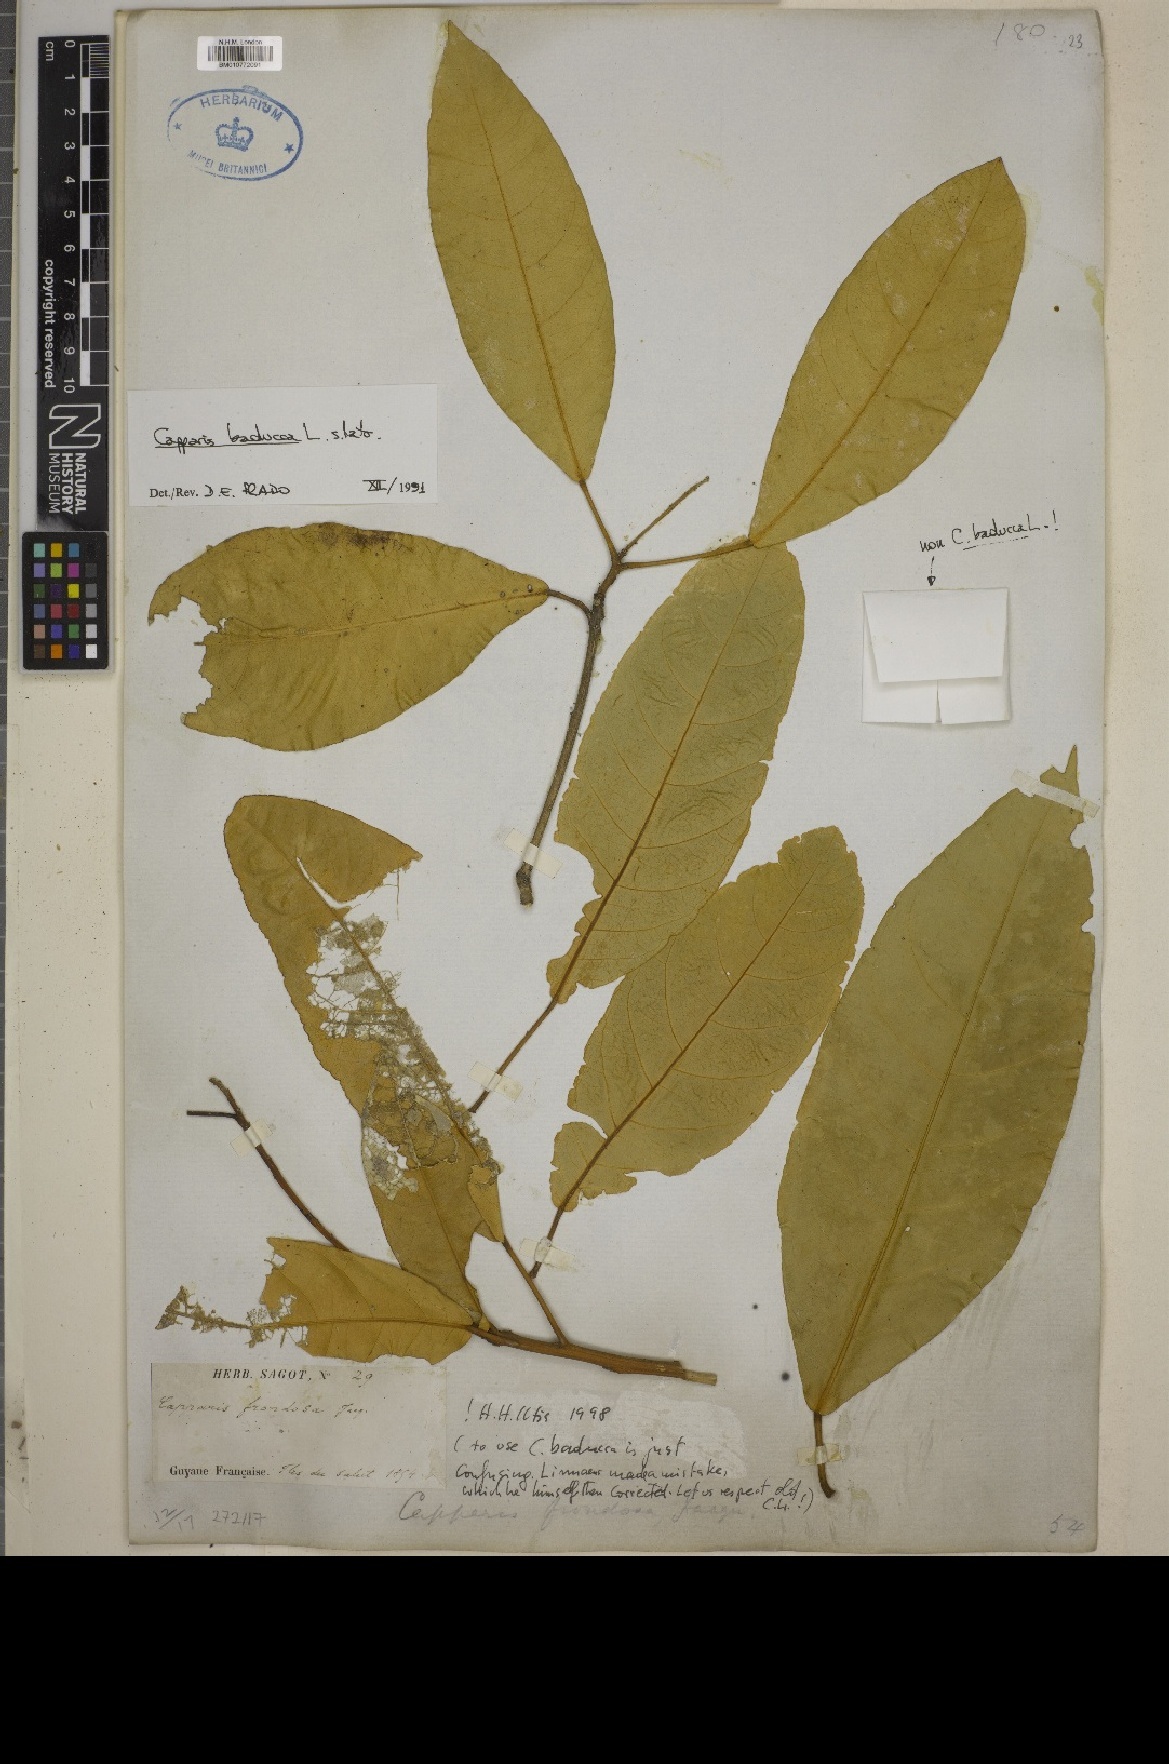 180. 23
cm 0 1 2 3 4 5 6 7 8 9 10
copyright reserved
NATURAL
HISTORY
MUSEUM
HERBARIUM
MUSEI BRITANNICI
Capparis baducca L. s.lato.
Det./Rev. D. E. PRADO XII/1991
non C. baducca L.!
HERB. SAGOT, No 29
Capparis frondosa Jacq.
Guyane Française.
! H.H. Iltis 1998
( to use C. baducca is just
confusing. Linnaeus made a mistake,
which he himself then corrected. Let us respect old
C.L.!)
Capparis frondosa Jacqu.
272117
54